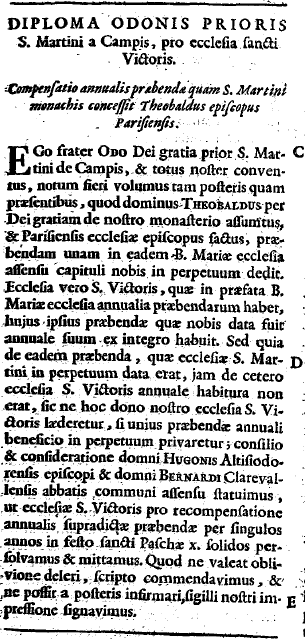 DIPLOMA ODONIS PRIORIS
S. Martini a Campis, pro ecclesia sancti
Victoris.
Compensatio annualis præbendæ quam S. Martini
monachis concessit Theobaldus episcopus
Parisiensis.
EGo frater ODO Dei gratia prior S. Mar- C
tini de Campis, & totus noster conven-
tus, notum fieri volumus tam posteris quam
præsentibus, quod dominus THEOBALDUS per
Dei gratiam de nostro monasterio assumtus,
& Parisiensis ecclesiæ episcopus factus, præ-
bendam unam in eadem B. Mariæ ecclesia
assensu capituli nobis in perpetuum dedit.
Ecclesia vero S. Victoris, quæ in præfata B.
Mariæ ecclesia annualia præbendarum habet,
hujus ipsius præbendæ quæ nobis data fuit
annuale suum ex integro habuit. Sed quia
de eadem præbenda, quæ ecclesiæ S. Mar- D
tini in perpetuum data erat, jam de cetero
ecclesia S. Victoris annuale habitura non
erat, sic ne hoc dono nostro ecclesia S. Vi-
ctoris læderetur, si unius præbendæ annuali
beneficio in perpetuum privaretur; consilio
& consideratione domni HUGONIS Altisiodo-
rensis episcopi & domni BERNARDI Clareval-
lensis abbatis communi assensu statuimus,
ut ecclesiæ S. Victoris pro recompensatione
annualis supradictæ præbendæ per singulos
annos in festo sancti Paschæ x. solidos per-
solvamus & mittamus. Quod ne valeat obli-
vione deleri, scripto commendavimus, &
ne possit a posteris infirmari, sigilli nostri im- E
pressione signavimus.